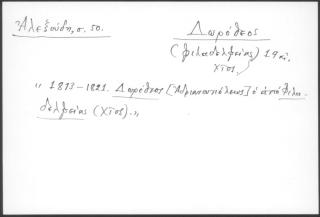 Ἀλεξούδη, σ. 50.
Δωρόθεος
(Φιλαδελφείας) 19 αἰ.
Χῖος.
" 1813-1821. Δωρόθεος [Ἀδριανουπόλεως] ὁ ἀπὸ Φιλα-
δελφείας (Χῖος). "